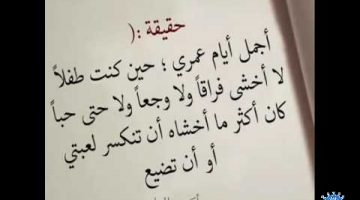 حقيقة :(
أجمل أيام عمري ؛ حين كنت طفلاً
لا أخشى فراقاً ولا وجعاً ولا حتى حباً
كان أكثر ما أخشاه أن تنكسر لعبتي
أو أن تضيع